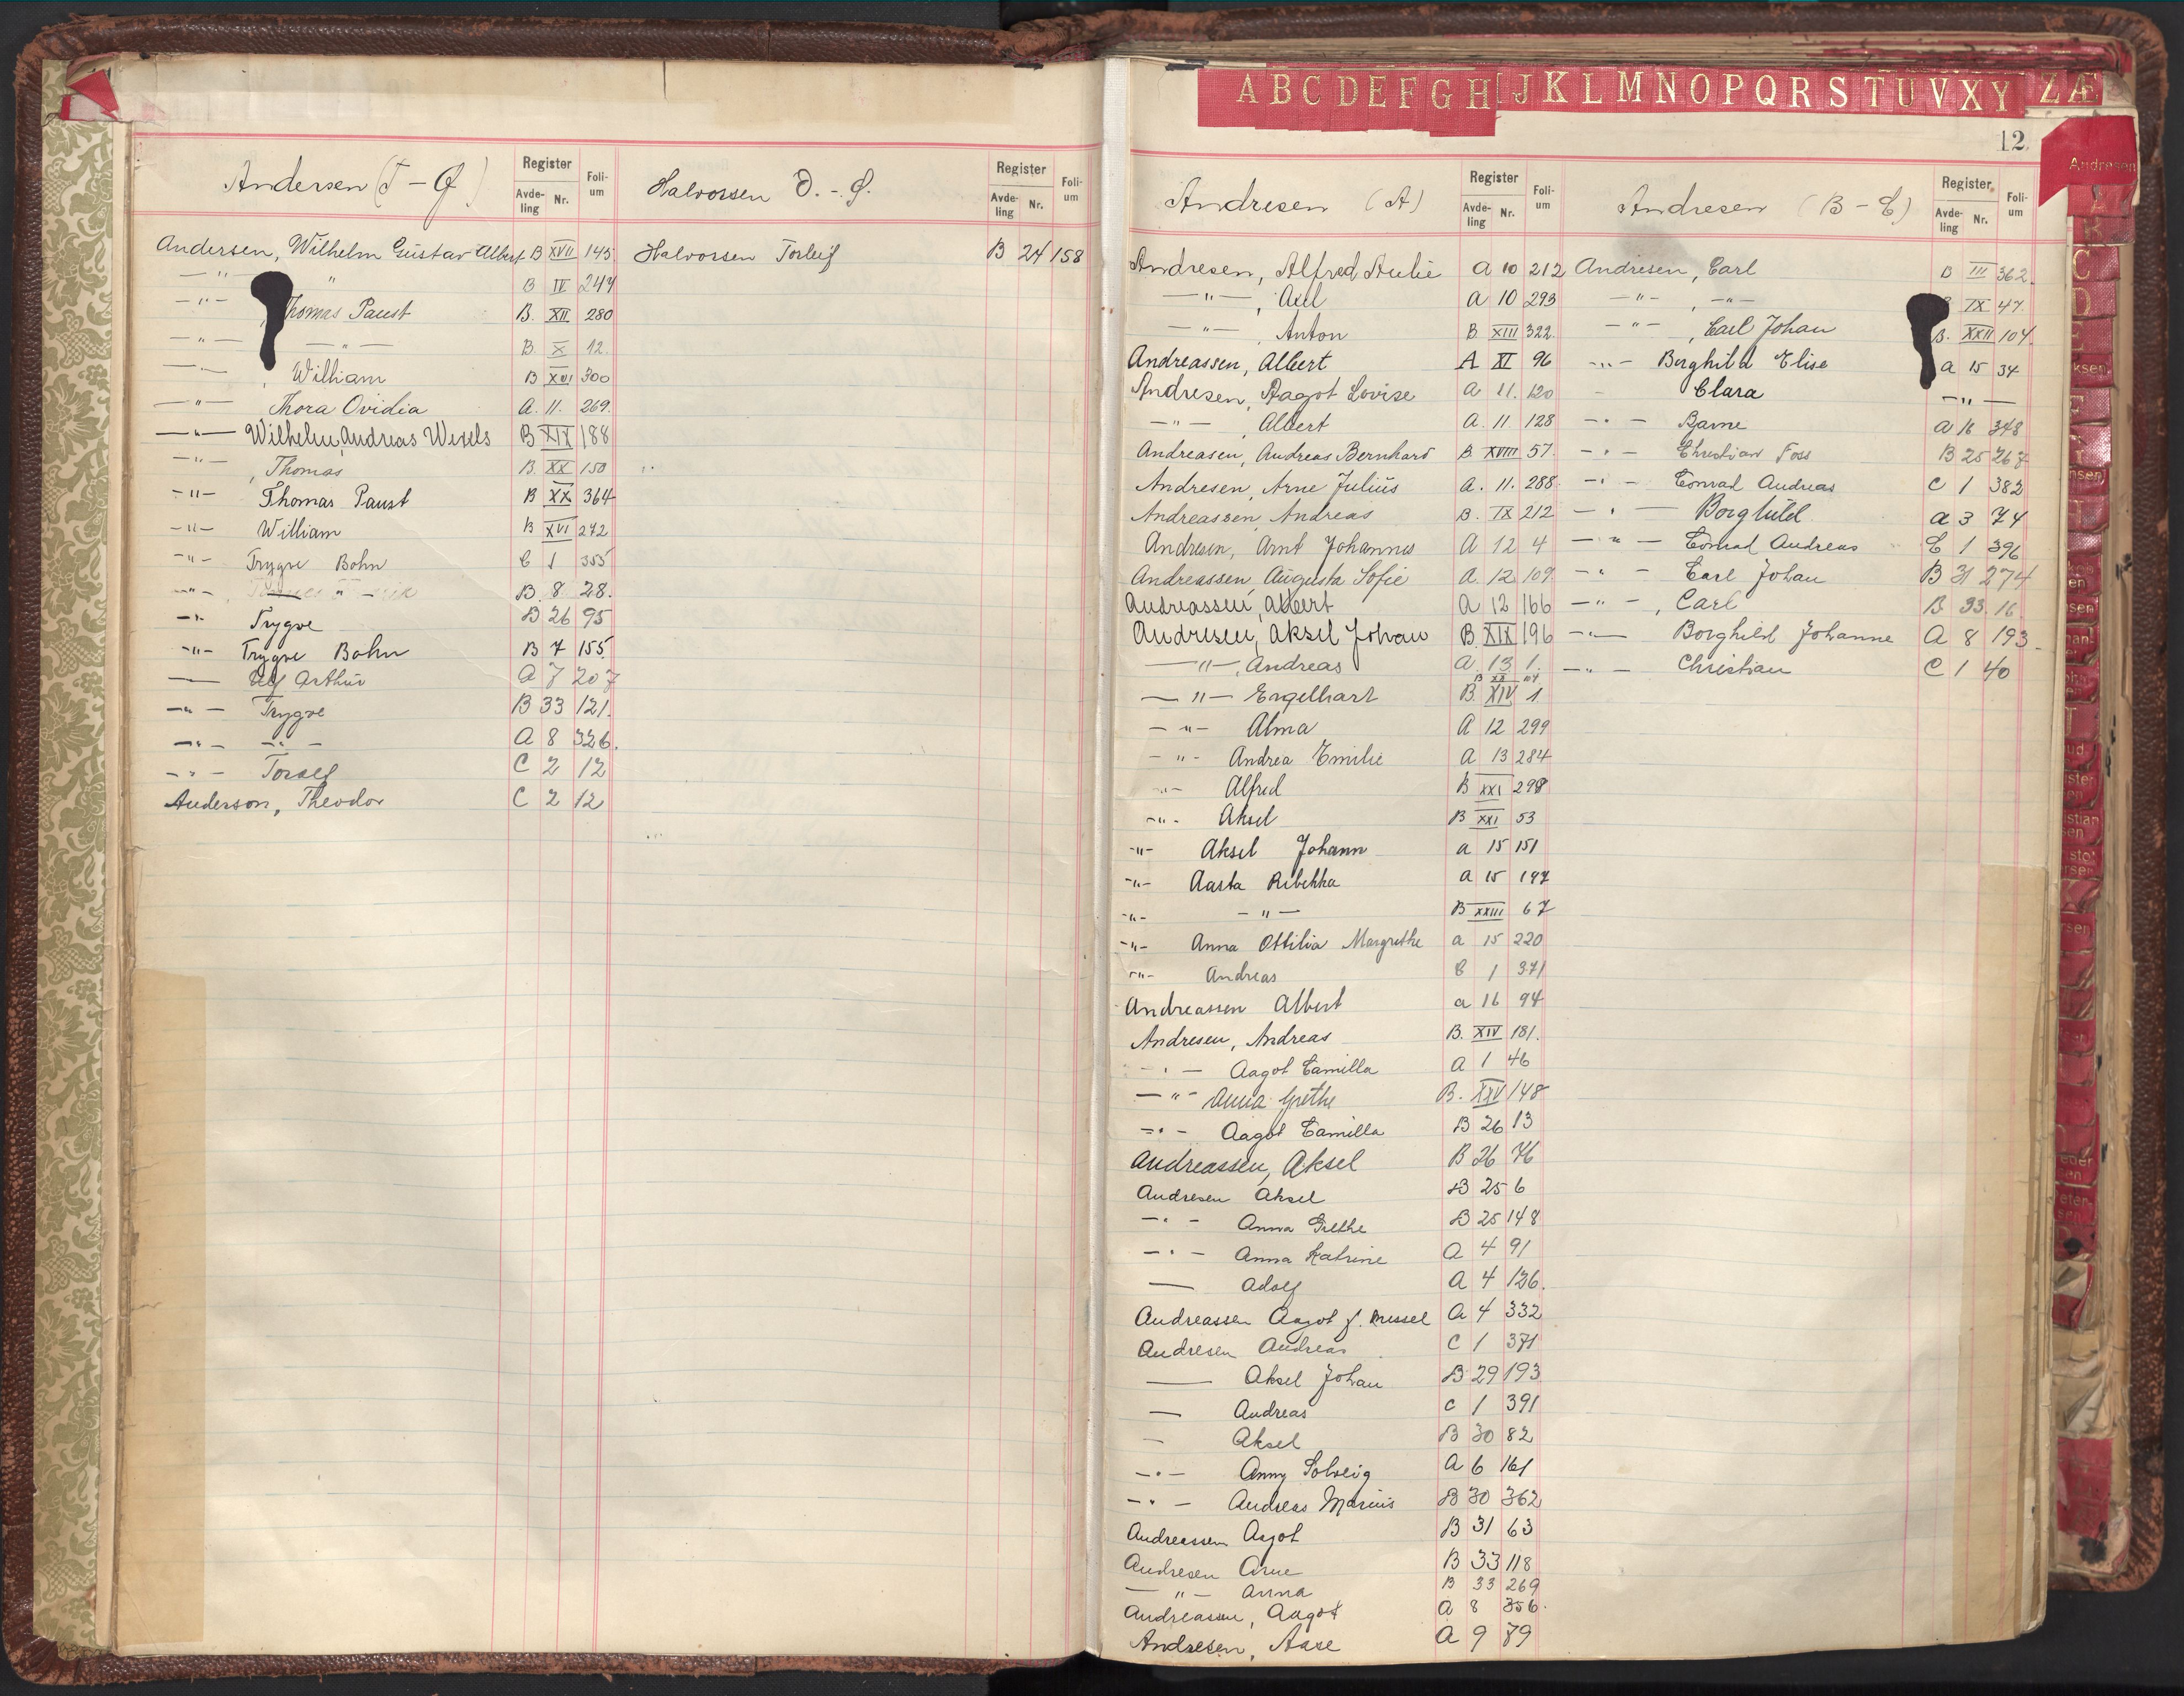 Andersen (T - Ø)
Register
Avde-ling Nr.
Foli-um
Andersen, Wilhelm Gustav Albert B XVII 145
—"— " B IV 244
—"— , Thomas Paust B. XII 280
—"— —"— B. X 12.
—"— , William B XVI 300
—"— , Thora Ovidia A. 11. 269.
—"— Wilhelm Andreas Wesels B XIX 188
—"— , Thomas B. XX 150
—"— Thomas Paust B XX 364
—"— William B XVI 272
—"— Trygve Bohn C 1 355
—"— B. 8 28.
—"— Trygve B 26 95
—"— Trygve Bohn B 7 155
— Ulf Arthur A 7 207
—"— Trygve B 33 121.
—"— —"— A 8 326.
—"— Toralf C 2 12
Anderson, Theodor C 2 12
Halvorsen O. - Ø.
Register
Avde-ling Nr.
Foli-um
Halvorsen Torleif B 24 158
A B C D E F G H I J K L M N O P Q R S T U V X Y Z Æ
12.
Andresen
Andresen (A)
Register
Avde-ling Nr.
Foli-um
Andresen, Alfred Aulie A 10 212
—"— , Axel A 10 293
—"— , Anton B XIII 322.
Andreassen, Albert A XI 96
Andresen, Aagot Lovise A 11. 120
—"— , Albert A. 11 128
Andreasen, Andreas Bernhard B. XVIII 57.
Andresen, Arne Julius A. 11. 288.
Andreassen, Andreas B. IX 212
Andresen, Arnt Johannes A 12 4
Andreassen, Augusta Sofie A. 12 109
Andreassen, Albert A 12 166
Andresen, Aksel Johan B. XIX 196
—"— , Andreas A. 13 1.
B XX 104
—"— Engelhart B. XIV 1
—"— Alma A 12 299
—"— Andrea Emilie A 13 284
—"— Alfred B XXI 298
—"— Aksel B XXI 53
—"— Aksel Johann a 15 151
—"— Aasta Rebekka a 15 197
—"— —"— B XXIII 67
—"— Anna Ottilia Margrethe a 15 220
—"— Andreas C 1 371
Andreassen Albert a 16 94
Andresen, Andreas B. XIV 181.
—"— Aagot Camilla A 1 46
—"— Anna Grethe B. XXV 148
—"— Aagot Camilla B 26 13
Andreassen, Aksel B 26 76
Andresen Aksel B 25 6
—"— Anna Grethe B 25 148
—"— Anna Katrine A 4 91
— Adolf A 4 126.
Andreassen Aagot f. Messel A 4 332
Andresen Andreas C 1 371
— Aksel Johan B 29 193
— Andreas C 1 391
— Aksel B 30 82
—"— Anny Solveig A 6 161
—"— Andreas Marius B 30 362
Andreassen Aagot B 31 63
Andresen Arne B 33 118
—"— Anna B 33 269
Andreassen, Aagot A 8 356.
Andresen, Aase A 9 79
Andresen (B - C)
Register
Avde-ling Nr.
Foli-um
Andresen, Carl B III 362.
—"— , —"— IX 47.
—"— , Carl Johan B. XXII 104.
—"— Borghild Elise a 15 34
- Clara —"—
—"— Bjarne a 16 348
—"— Christian Foss B 25 267
—"— Conrad Andreas C 1 382
—"— Borghild a 3 74
—"— Conrad Andreas C 1 396
—"— Carl Johan B 31 274
—"— , Carl B 33. 16.
—"— Borghild Johanne A 8 193.
—"— Christian C 1 40